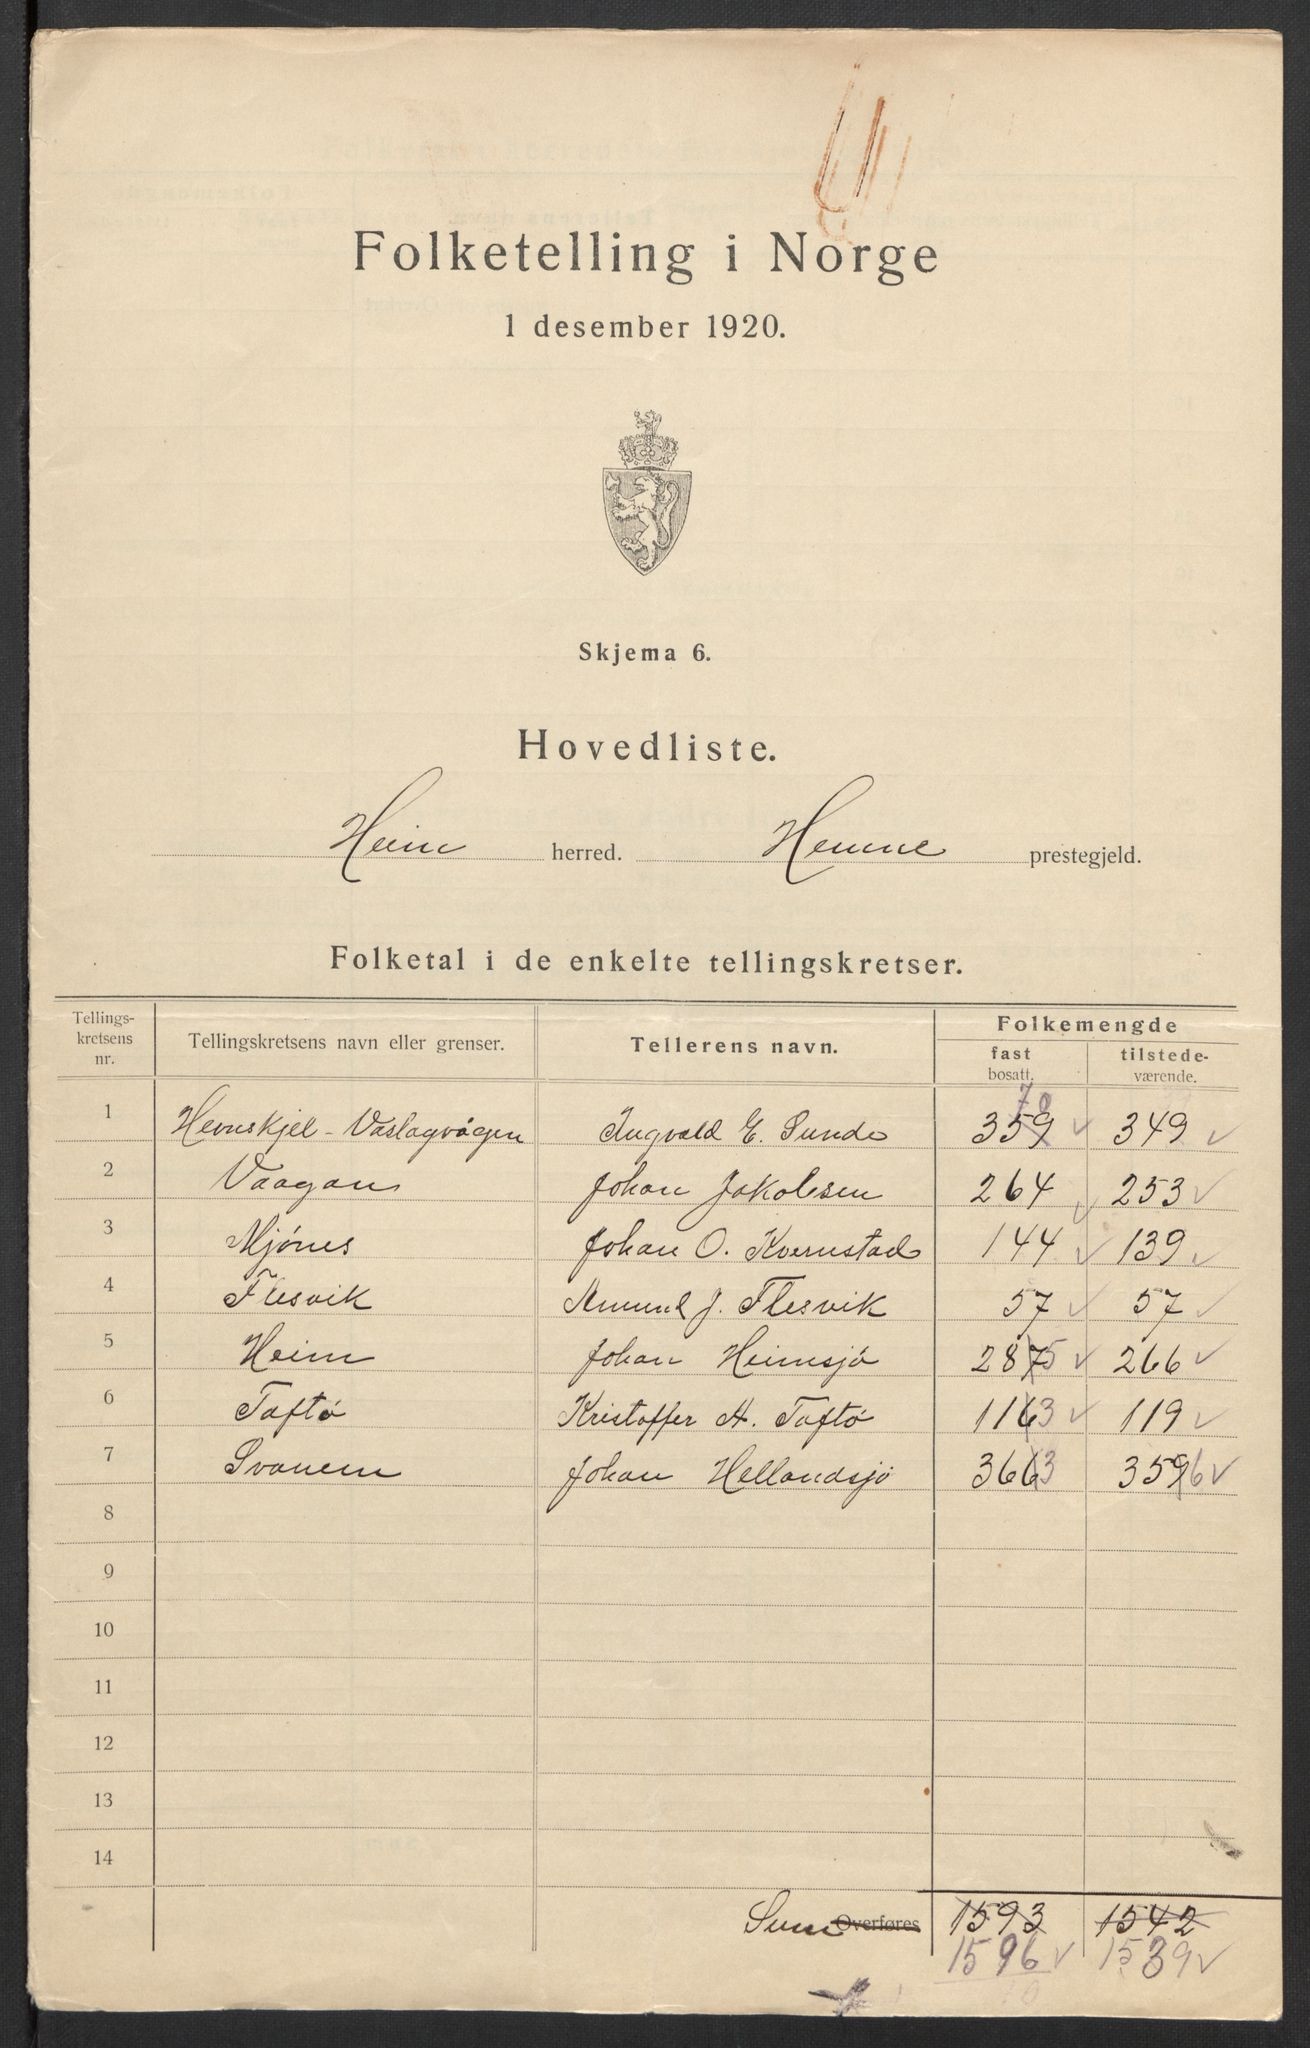 Folketelling i Norge
1 desember 1920.
Skjema 6.
Hovedliste.
Heim herred. Hemne prestegjeld.
Folketal i de enkelte tellingskretser.
Tellings-
kretsens
nr.
Tellingskretsens navn eller grenser.
Tellerens navn.
Folkemengde
fast
bosatt.
tilstede-
værende.
70
1 Hevnskjel - Vaslagvågen Ingvald E. Sunde 359 ✓ 349 ✓
2 Vaagan Johan Jakobsen 264 ✓ 253 ✓
3 Mjönes Johan O. Kvernstad 144 ✓ 139 ✓
4 Flesvik Amund J. Flesvik 57 ✓ 57 ✓
5 Heim Johan Heimsjö 2875 ✓ 266 ✓
6 Taftö Kristoffer A. Taftö 1163 ✓ 119 ✓
7 Svanem Johan Hellandsjö 3663 3596 ✓
8
9
10
11
12
13
14
Sum Overføres 1593 1542
1596 ✓ 1539 ✓
10